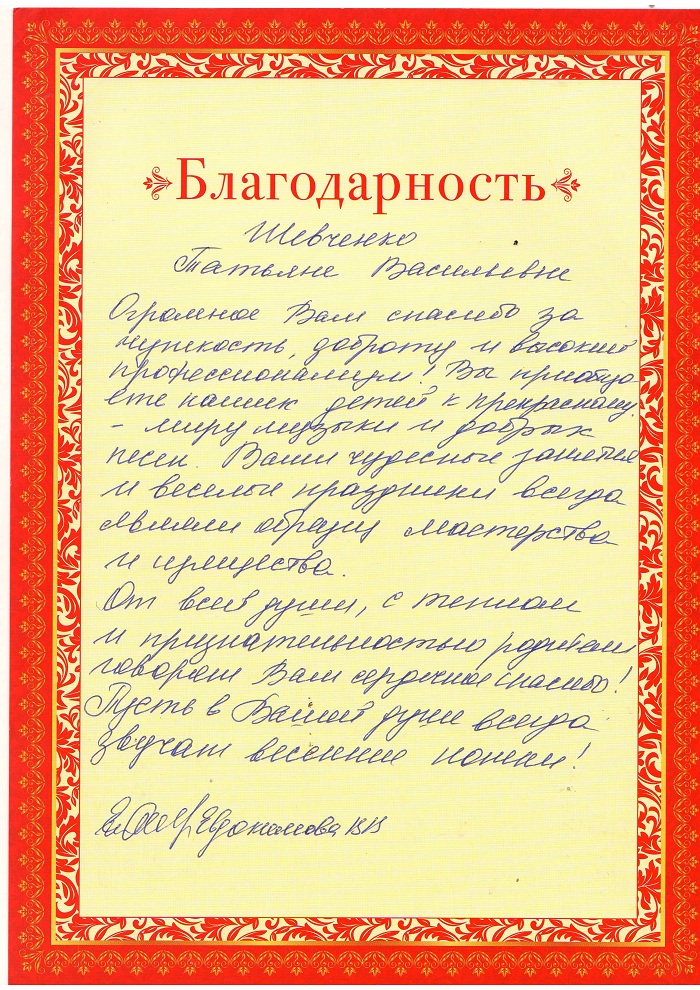 Благодарность
Шевченко
Татьяне Васильевне
Огромное Вам спасибо за
чуткость, доброту и высокий
профессионализм! Вы приобща-
ете наших детей к прекрасному
- миру музыки и добрых
песен. Ваши чудесные занятия
и веселые праздники всегда
являли образец мастерства
и изящества.
От всей души, с теплом
и признательностью родители
говорят Вам сердечное спасибо!
Пусть в Вашей душе всегда
звучат весенние нотки!
Евдокимова В.В